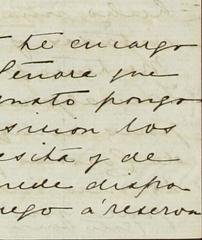 te encargo
Señora que
nato pongo
sision los
esita y de
uede dispo
uego á reserva